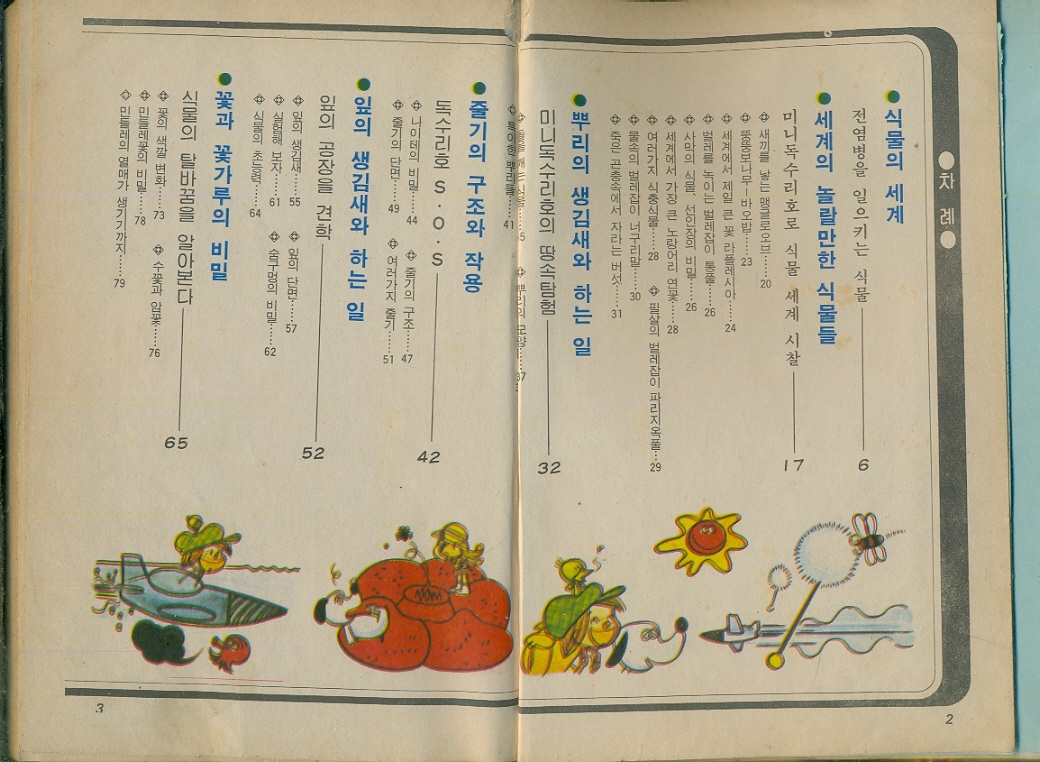 차 례
식물의 세계
전염병을 일으키는 식물 6
세계의 놀랄만한 식물들
미니독수리호로 식물 세계 시찰 17
새끼를 낳는 맹글로오브……20
뚱뚱보나무—바오밥……23
세계에서 제일 큰 꽃 라플레시아……24
벌레를 녹이는 벌레잡이 통풀……26
사막의 식물, 선인장의 비밀……26
세계에서 가장 큰 노랑어리 연꽃……28
여러가지 식충식물……28
필살의 벌레잡이 파리지옥풀……29
물속의 벌레잡이 너구리말……30
죽은 곤충속에서 자라는 버섯……31
뿌리의 생김새와 하는 일
미니독수리호의 땅속탐험 32
뿌리의 모양……37
특이한 뿌리들……41
줄기의 구조와 작용
독수리호 S·O·S 42
나이테의 비밀……44
줄기의 구조……47
줄기의 단면……49
여러가지 줄기……51
잎의 생김새와 하는 일
잎의 공장을 견학 52
잎의 생김새……55
잎의 단면……57
실험해 보자……61
숨구멍의 비밀……62
식물의 초능력……64
꽃과 꽃가루의 비밀
식물의 탈바꿈을 알아본다 65
꽃의 색깔 변화……73
수꽃과 암꽃……76
민들레꽃의 비밀……78
민들레의 열매가 생기기까지……79
3
2